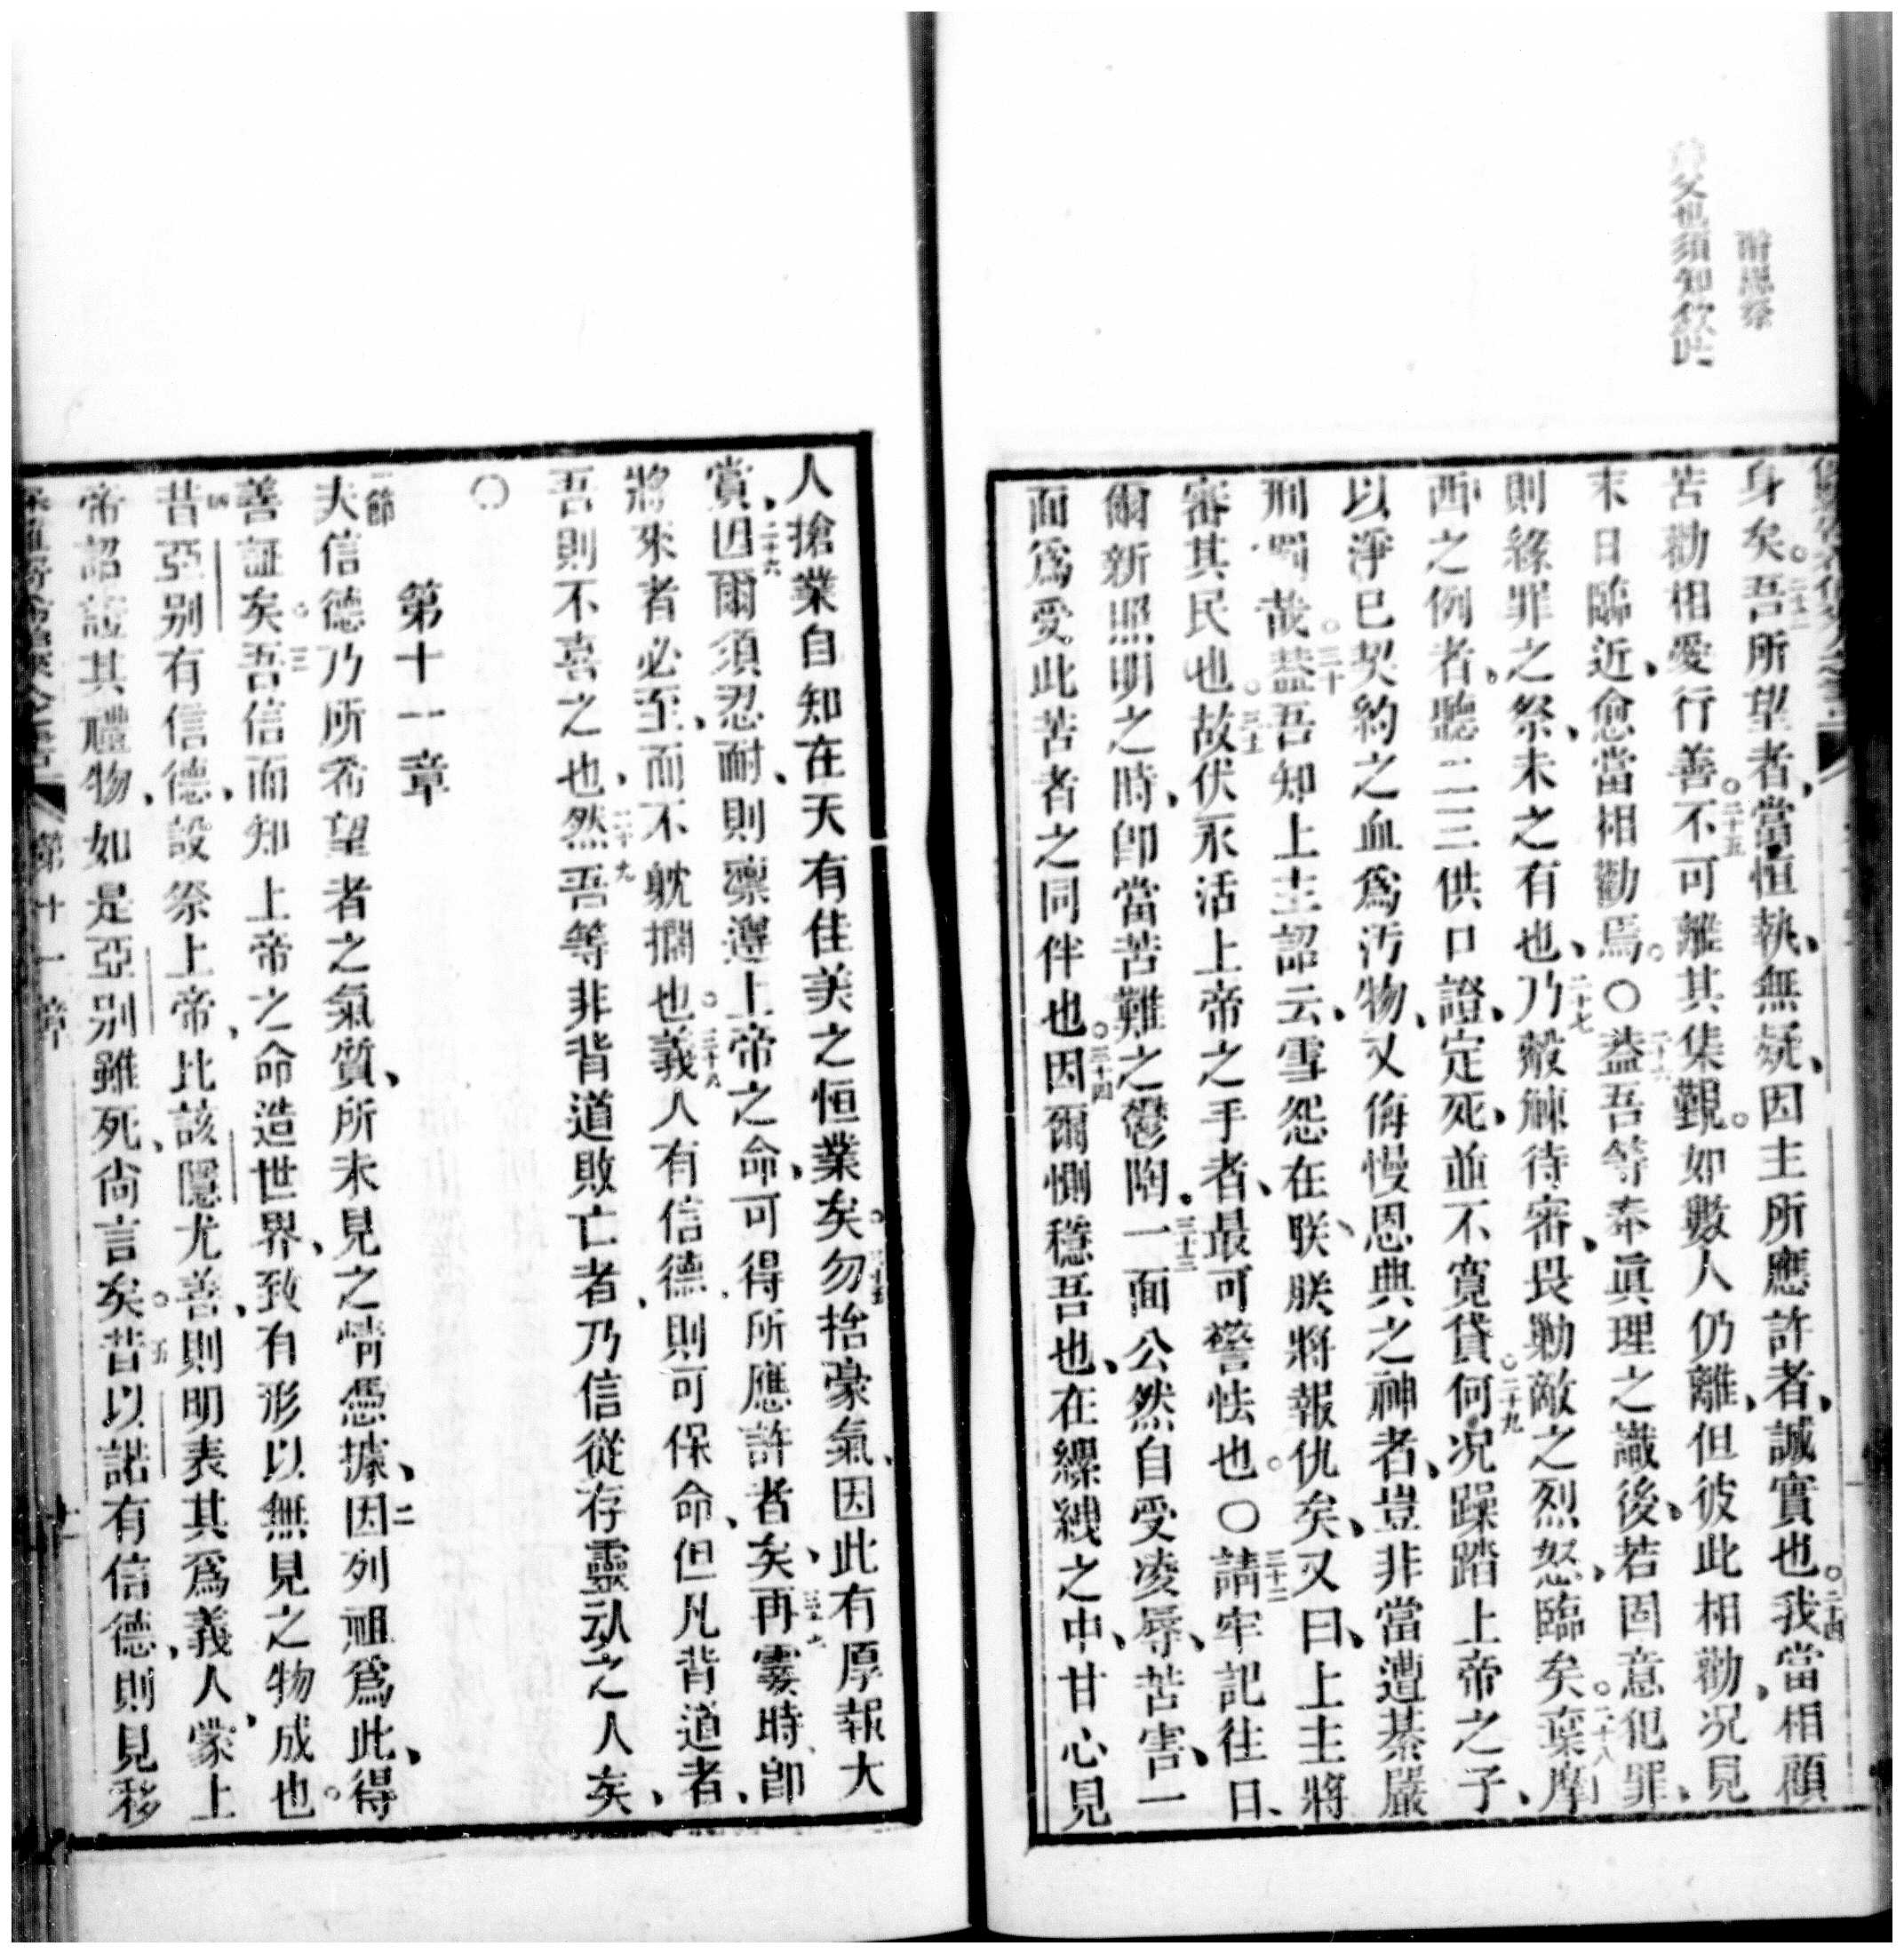 身矣。二十三吾所望者、當恒執、無疑、因主所應許者、誠實也。二十四我當相顧
苦勸相愛行善。二十五不可離其集覲。如數人仍離、但彼此相勸、况見
末日臨近、愈當相勸焉。○二十六葢吾等奉眞理之識後、若固意犯罪、
則緣罪之祭、未之有也、二十七乃觳觫待審、畏勦敵之烈怒、臨矣。二十八棄摩
西之例者、聽二三供口證、定死、並不寬貸。二十九何况躁踏上帝之子、
以淨巳契約之血爲汚物、又侮慢恩典之神者、豈非當遭綦嚴
刑罰哉。三十葢吾知上主詔云、雪怨在朕、朕將報仇矣、又曰、上主將
審其民也。三十一故伏永活上帝之手者、最可警怯也。○三十二請牢記往日、
爾新照明之時、卽當苦難之鬱陶。三十三一面公然自受凌辱、苦害、一
面爲受此苦者之同伴也。三十四因爾惻穩吾也、在縲絏之中、甘心見
人搶業自知在天有佳美之恒業矣。三十五勿抬豪氣、因此有厚報大
賞、三十六因爾須忍耐、則禀遵上帝之命、可得所應許者矣、三十七再霎時、卽
將來者必至、而不躭擱也。三十八義人有信德、則可保命、但凡背道者、
吾則不喜之也、三十九然吾等非背道敗亡者、乃信從存靈㳂之人矣、
○
第十一章
一節夫信德乃所希望者之氣質、所未見之情憑據、二因列祖爲此、得
善証矣。三吾信而知上帝之命造世界、致有形以無見之物成也。
四昔亞别有信德、設祭上帝、比該隱尤善、則明表其爲義人、蒙上
帝詔證其禮物、如是亞别雖死、尙言矣。五昔以諾有信德、則見移
第十一章